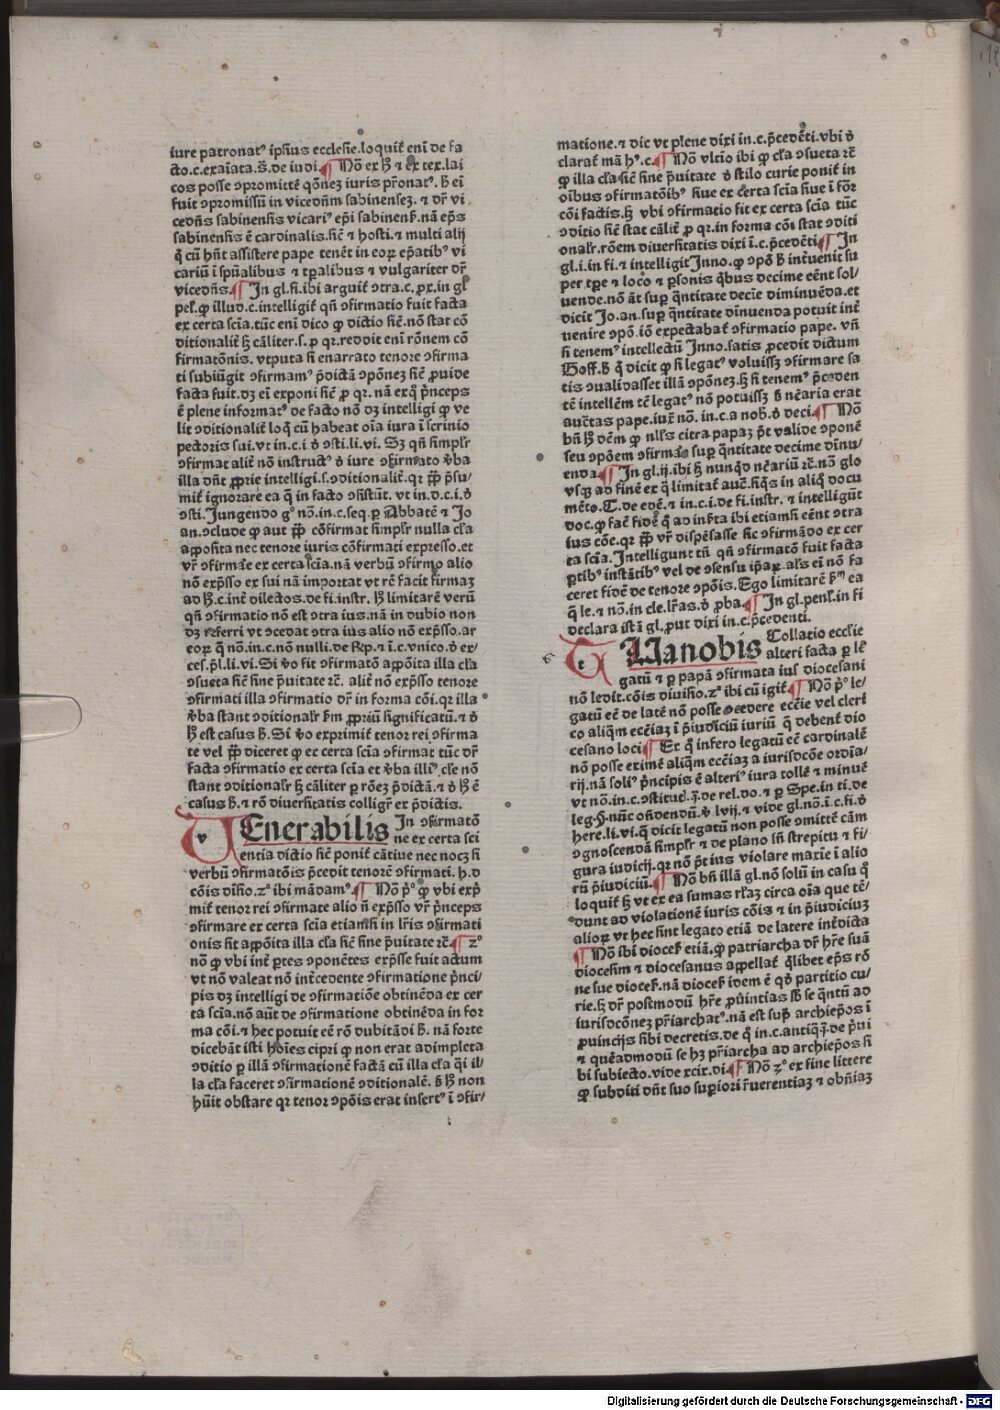 iure patronatꝰ ipsius ecclesie.loquit̄ eni de fa
cto.c.exaīata.s̄.de iudi.¶ Nō ex ħ ⁊ ex tex.lai
cos posse ꝯpromittē qōnez iuris p̄ronatꝰ.ħ ei
fuit ꝯpromissū in vicedn̄m sabinensez.⁊ dr̄ vi
cedn̄s sabinensis vicariꝰ ep̄i sabinens̄.nā ep̄s
sabinensis ē cardinalis.sic̄ ⁊ hosti.⁊ multi alij
q̄ cū hn̄t assistere pape tenēt in eoꝝ ep̄atibꝰ vi
cariū ī sp̄ualibus ⁊ tp̄alibus ⁊ vulgariter dr̄
vicedn̄s.¶ In gl.fi.ibi arguit̄ ꝯtra.c.ꝓx.in gl
pel̄.ꝙ illud.c.intelligit̄ qn̄ ꝯfirmatio fuit facta
ex certa scīa.tūc eni dico ꝙ dictio sic̄.nō stat cō
ditionalit̄ ꜩ cāliter.s.ꝓ qꝛ.reddit eni rōnem cō
firmatōnis.vtputa si enarrato tenore ꝯfirma
ti subiūgit ꝯfirmamꝰ p̄dictā ꝯpōnez sic̄ ꝓuide
facta fuit.dꝫ ei exponi sic̄ ꝓ qꝛ.nā exq̄ p̄nceps
ē plene informatꝰ de facto nō dꝫ intelligi ꝙ ve
lit ꝯditionalit̄ loq̄ cū habeat oīa iura ī scrinio
pectoris sui.vt in.c.i ꝺ ꝯsti.li.vi. Sꝫ qn̄ simplr̄
ꝯfirmat alit̄ nō instructꝰ ꝺ iure ꝯfirmato v̄ba
illa dn̄t ꝓprie intelligi.s.ꝯditionalit̄.qꝛ pp̄ p̄su/
mit̄ ignorare ea q̄ in facto ꝯsistūt. vt in.d.c.i.ꝺ
ꝯsti. Jungendo gͦ nō.in.c.seq.ꝑ Abbatē ⁊ Jo
an.ꝯclude ꝙ aut pp̄ cōfirmat simplr̄ nulla cl̄a
apposita nec tenore iuris cōfirmati expresso.et
vr̄ ꝯfirmare ex certa scīa.nā verbū ꝯfirmo alio
nō exp̄sso ex sui nā importat vt rē facit firmaꝫ
ad ħ.c.int̄ dilectos.de fi.instr. ħ limitarē verū
qn̄ ꝯfirmatio nō est ꝯtra ius.nā in dubio non
dꝫ referri vt ꝯcedat ꝯtra ius alio nō exp̄sso.ar
eoꝝ q̄ nō.in.c.nō nulli.de Rp.⁊ ī.c.vnico.ꝺ ex/
ces.p̄l.li.vi. Si ꝟo fit ꝯfirmatō appōita illa cl̄a
ꝯsueta sic̄ sine p̄uitate ⁊c̄. alit̄ nō exp̄sso tenore
ꝯfirmati illa ꝯfirmatio dr̄ in forma cōi.qꝛ illa
ꝟba stant ꝯditionalr̄ ẜm ꝓpriū significatū.⁊ ꝺ
ħ est casus ħ. Si ꝟo exprimit̄ tenor rei ꝯfirma
te vel pp̄ diceret ꝙ ec certa scīa ꝯfirmat tūc dr̄
facta ꝯfirmatio ex certa scīa et ꝟba illiꝰ cl̄e nō
stant ꝯditionalr̄ ꜩ cāliter ꝑ rōez p̄dictā.⁊ ꝺ ħ ē
casus ħ.⁊ rō diuersitatis colligr̄ ex p̄dictis.
VEnerabilis In ꝯfirmatō
ne ex certa sci
entia dictio sic̄ ponit̄ cātiue nec nocꝫ si
verbū ꝯfirmatōis p̄cedit tenorē ꝯfirmati.h.d
cōis dīsio.zͣ ibi mādamꝰ.¶ Nō pͦ ꝙ vbi exp̄
mit̄ tenor rei ꝯfirmate alio n̄ exp̄sso vr̄ p̄nceps
ꝯfirmare ex certa scīa etiamsi in lr̄is ꝯfirmati
onis sit appōita illa cl̄a sic̄ sine p̄uitate ⁊c̄.¶ zͦ
nō ꝙ vbi int̄ ꝑtes ꝯponētes exp̄sse fuit actum
vt nō valeat nō int̄cedente ꝯfirmatione p̄nci/
pis dꝫ intelligi de ꝯfirmatiōe obtinēda ex cer
ta scīa.nō aūt de ꝯfirmatione obtinēda in for
ma cōi.⁊ hec potuit eē rō dubitādi ħ. nā forte
dicebāt isti hoīes cipri ꝙ non erat adimpleta
ꝯditio ꝑ illā ꝯfirmationē factā cū illa cl̄a q̄i il/
la cl̄a faceret ꝯfirmationē ꝯditionalē. ꜩ ħ non
huīt obstare qꝛ tenor ꝯpōis erat insertꝰ ī ꝯfir/
matione.⁊ dic vt plene dixi in.c.p̄cedēti.vbi ꝺ
clarat̄ mā hꝰ.c.¶ Nō vltio ibi ꝙ cl̄a ꝯsueta ⁊c̄
ꝙ illa cl̄a sic̄ sine p̄uitate ꝺ stilo curie ponit̄ in
oībus ꝯfirmatōibꝰ siue ex certa scīa siue ī for̄
cōi factis.ꜩ vbi ꝯfirmatio fit ex certa scīa tūc
ꝯditio sic̄ stat cālit̄ ꝓ qꝛ.in forma cōi stat ꝯditi
onalr̄.rōem diuersitatis dixi ī.c.p̄cedēti¶ In
gl.i.in fi.⁊ intelligit Inno.ꝙ ꝯpō ħ int̄uenit su
per tꝑe ⁊ loco ⁊ ꝑsonis q̄bus decime eēnt sol/
uende.nō āt suꝑ q̄ntitate decīe diminuēda.et
dicit Jo.an.suꝑ q̄ntitate dīnuenda potuit int̄
uenire ꝯpō.iō expectabat̄ ꝯfirmatio pape. vn̄
si tenemꝰ intellectū Inno.satis ꝓcedit dictum
Goff.ħ q̄ dicit ꝙ si legatꝰ voluissꝫ ꝯfirmare sa
tis ꝯualidasset illā ꝯpōnez.ꜩ si tenemꝰ p̄ceden
tē intellēm tē legatꝰ nō potuissꝫ ꜩ nc̄aria erat
auctas pape.iux̄ nō. in.c.a nob̄.ꝺ deci.¶ Nō
bn̄ ħ dēm ꝙ nll̄s citra papaꝫ pt̄ valide ꝯponē
seu ꝯpōem ꝯfirmare suꝑ q̄ntitate decime dīnu/
enda.¶ In gl.ij.ibi ꜩ nunqd̄ nc̄ariū ⁊c̄.nō glo
vsqꝫ ad finē ex q̄ limitat̄ auc̄.siq̄s in aliq̄ docu
mēto.C.de edē.⁊ in.c.i.de fi.instr̄. ⁊ intelligūt
doc.ꝙ fac̄ fidē q̄ ad infrīta ibi etiamsi eēnt ꝯtra
ius cōe.qꝛ pp̄ vr̄ dispēsasse sic ꝯfirmādo ex cer
ta scīa. Intelligunt tn̄ qn̄ ꝯfirmatō fuit facta
ꝑtibꝰ instātibꝰ vel de ꝯsensu ip̄aꝝ.al̄s eī nō fa
ceret fidē de tenore ꝯpōis. Ego limitarē ẜm ea
q̄ le.⁊ nō.in cle.lr̄as.ꝺ ꝓba.¶ In gl.penl̄.in fi
declara istā gl.ꝓut dixi in.c.p̄cedenti.
TUa nobis Collatio ecclīe
alteri facta ꝑ le
gatū ⁊ ꝑ papā ꝯfirmata ius diocesani
nō ledit.cōis diuisio.zͣ ibi cū igit̄.¶ Nō pͦ le/
gatū eē de latē nō posse ꝯcedere ecc̄ie vel cleri
co aliqm̄ ecc̄iaꝫ ī p̄iudiciū iuriū q̄ debent̄ dio
cesano loci¶ Ex q̄ infero legatū eē cardinalē
nō posse eximē aliqm̄ ecc̄iaꝫ a iurisdcōe ordīa/
rij.nā soliꝰ p̄ncipis ē alteriꝰ iura tollē ⁊ minuē
vt nō.in.c.ꝯstitutꝰ.j.de rel.do.⁊ ꝑ Spe.in ti.de
leg.§.nūc ondendū.ꝟ lvij.⁊ vide gl.nō.ī.c.fi.ꝺ
here.li.vi.q̄ dicit legatū non posse ꝯmittē cām
ꝯgnoscendā simplr̄ ⁊ de plano sn̄ strepitu ⁊ fi/
gura iudicij.qꝛ nō pt̄ ius violare maxīe ī alio
rū p̄iudiciū.¶ Nō bn̄ illā gl.nō solū in casu q̄
loquit̄ ꜩ vt ex ea sumas rl̄az circa oīa que tē/
dunt ad violationē iuris cōis ⁊ in p̄iudiciuꝫ
alioꝝ vt hec sint legato etiā de latere int̄dicta
¶ Nō ibi dioces̄ etiā.ꝙ patriarcha dr̄ hr̄e suā
diocesim ⁊ diocesanus appellat̄ q̄libet ep̄s rō
ne sue dioces̄.nā dioces̄ idem ē qd̄ partitio cu/
rie.ꜩ dr̄ postmodū hr̄e ꝓuintias sb̄ se q̄ntū ad
iurisdcōnez pr̄iarchatꝰ.nā est sup̄ archiep̄os ī
ꝓuincijs sibi decretis.de q̄ in.c.antiq̄.j.de p̄ui
⁊ quēadmodū se hꝫ pr̄iarcha ad archiep̄os si
bi subiecto.vide xcix.di.¶ Nō zͦ ex fine littere
ꝙ subditi dn̄t suo suꝑiori r̄uerentiaꝫ ⁊ obn̄iaꝫ
Digitalisierung gefördert durch die Deutsche Forschungsgemeinschaft - DFG